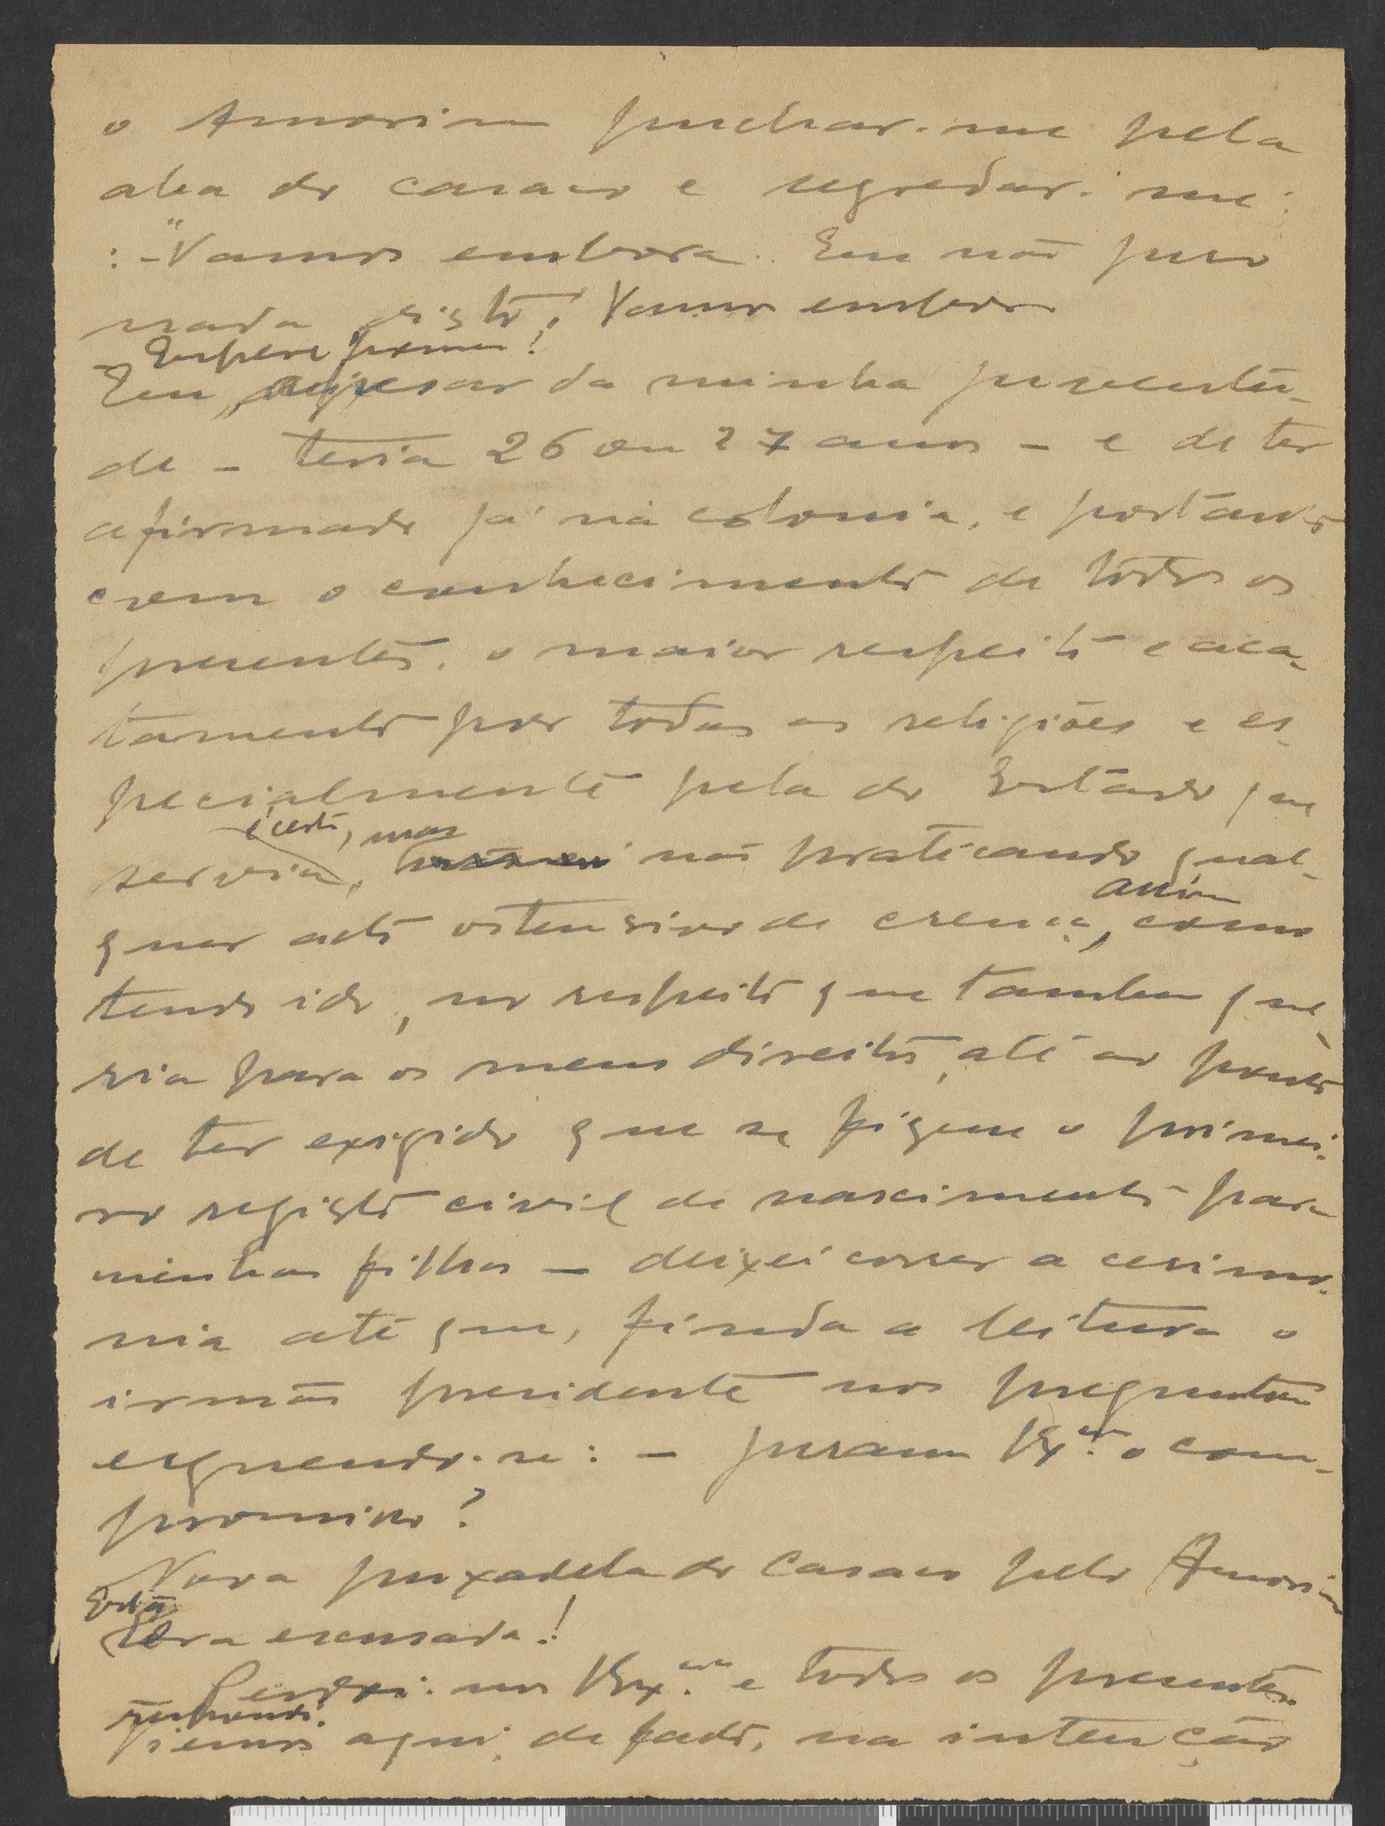 o Amorim puchar-me pela
aba do casaco e segredar-me:
:-"Vamos embora. Eu não juro
nada disto! Vamos embora
Espere homem!
Eu, apesar da minha juventu-
de - teria 26 ou 27 anos - e de ter
afirmado já na colonia, e portanto
com o conhecimento de todos os
presentes, o maior respeito e aca-
tamento por todas as religiões e es-
pecialmente pela do Estado que
é certo, mas
servia, não praticando qual-
assim
quer acto ostensivo de crença, como
tendo ido, no respeito que tambem que-
ria para os meus direitos, até ao ponto
de ter exigido que se fizesse o primei-
ro registo civil de nascimento para
minhas filhas - deixei correr a cerimo-
nia até que, finda a leitura o
irmão presidente nos preguntou
erguendo-se: - Juram VEx.as o com-
promisso?
Nova puxadela do casaco pelo Amorim
Então
era escusada!
Perdoi-nos VEx.as e todos os presentes
respondi.
viemos aqui, de facto, na intenção